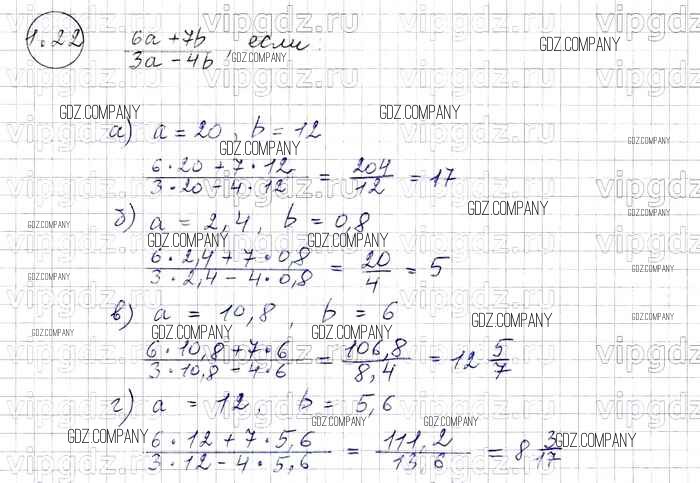 1.22 (6a + 7b)/(3a - 4b), если:
а) a = 20, b = 12
(6·20 + 7·12)/(3·20 - 4·12) = 204/12 = 17
б) a = 2,4, b = 0,8
(6·2,4 + 7·0,8)/(3·2,4 - 4·0,8) = 20/4 = 5
в) a = 10,8, b = 6
(6·10,8 + 7·6)/(3·10,8 - 4·6) = 106,8/8,4 = 12 5/7
г) a = 12, b = 5,6
(6·12 + 7·5,6)/(3·12 - 4·5,6) = 111,2/13,6 = 8 3/17
GDZ.COMPANY
vipgdz.ru